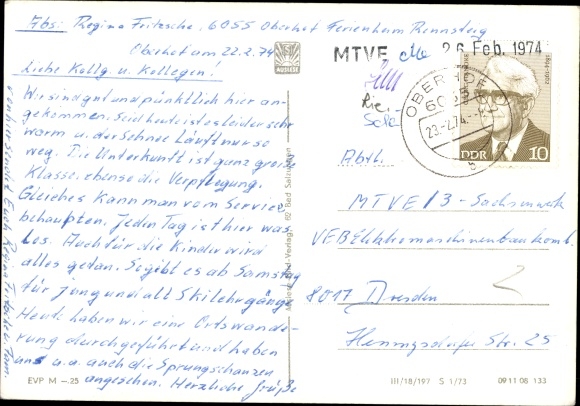 Abs: Regina Fritzsche, 6055 Oberhof Ferienheim Rennsteig
Oberhof am 22.2.74
Liebe Kollg u. Kollegen!
Wir sind gut und pünktlich hier an-
gekommen. Seid heute ist es leider sehr
warm u. der Schnee läuft nur so
weg. Die Unterkunft ist ganz große
Klasse, ebenso die Verpflegung.
Gleiches kann man vom Service
behaupten. Jeden Tag ist hier was
los. Auch für die Kinder wird
alles getan. So gibt es ab Samstag
für jung und alt Skilehrgänge
Heute haben wir eine Ortswande-
rung durchgeführt und haben
uns u.a. auch die Sprungschanzen
angesehen. Herzliche Grüße
Euch Regina Fritzsche u. Fam.
EVP M –.25
AUSLESE
Bild-Verlag 82 Bad Salzungen
MTVE 26 Feb. 1974
OBERHOF
6055
23.-2.74.
DDR
10
Abtlg.
MTVE/3 - Sachsenwerk
VEB Elektromaschinenbaukomb.
8017 Dresden
Hennigsdorfer Str. 25
2
III/18/197 S 1/73
09 11 08 133